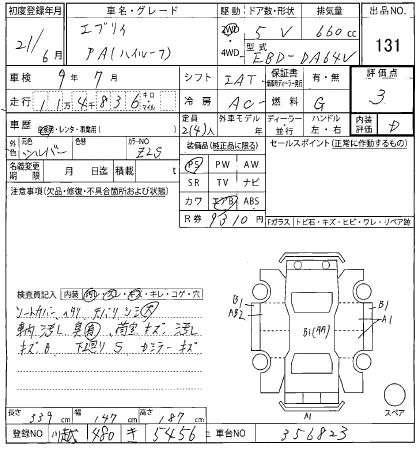 初度登録年月 車名・グレード 駆動 ドア数・形状 排気量 出品NO.
21/6月 エブリイ PA(ハイルーフ) 2WD 4WD 5 V 660cc 131
型式 EBD-DA64V
車検 9年7月 シフト IAT 保証書 有・無 評価点
走行 11万4836 キロ マイル 冷房 AC 燃料 G 3
車歴 自家用・レンタ・事業用( ) 定員 2(4)人 外車モデル 年 ディーラー 並行 ハンドル 左・右 内装評価 D
外色 元色 シルバー 色替 カラーNO Z2S
装備品(純正品に限る) セールスポイント(正常に作動するもの)
名義変更期限 月 日迄 積載量 t
PS PW AW
SR TV ナビ
カワ エアB ABS
注意事項(欠品・修復・不具合箇所および状態)
R券 9310円
Fガラス トビ石・キズ・ヒビ・ワレ・リペア跡
検査員記入 内装 汚レ・スレ・キズ・キレ・コゲ・穴
B1
AB2
B1
A1
キズB 下廻りS
A1
スペア
長さ 339cm 幅 147cm 高さ 187cm
登録NO 川越 480 き 5456 車台NO 356823